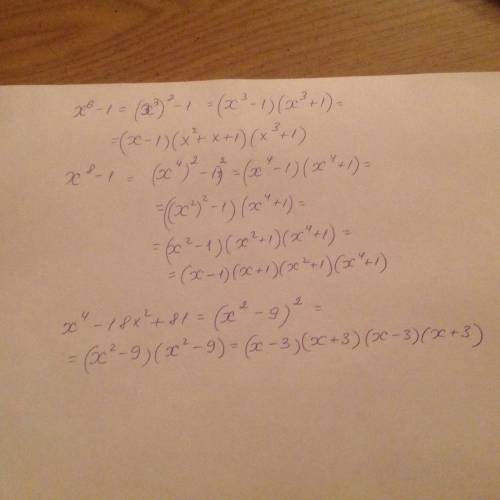 x⁶ - 1 = (x³)² - 1 = (x³ - 1)(x³ + 1) =
= (x - 1)(x² + x + 1)(x³ + 1)
x⁸ - 1 = (x⁴)² - 1² = (x⁴ - 1)(x⁴ + 1) =
= ((x²)² - 1)(x⁴ + 1) =
= (x² - 1)(x² + 1)(x⁴ + 1) =
= (x - 1)(x + 1)(x² + 1)(x⁴ + 1)
x⁴ - 18x² + 81 = (x² - 9)² =
= (x² - 9)(x² - 9) = (x - 3)(x + 3)(x - 3)(x + 3)